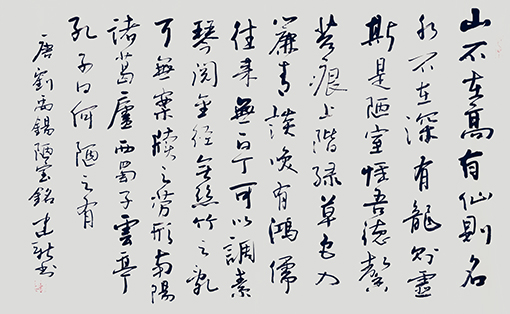 山不在高有仙則名
水不在深有龍則靈
斯是陋室惟吾德馨
苔痕上階綠草色入
簾青談笑有鴻儒
往来無白丁可以調素
琴閱金經無絲竹之亂
耳無案牘之勞形南陽
諸葛廬西蜀子雲亭
孔子曰何陋之有
唐劉禹錫陋室銘 建新書